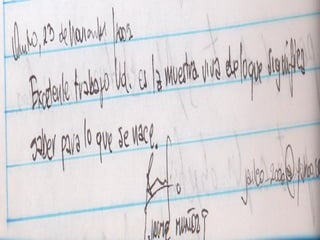 Quito, 23 de Noviembre / 2002
Excelente trabajo Ud. es la muestra viva de lo que significa
saber para lo que se nace.
Jaime Muñoz T